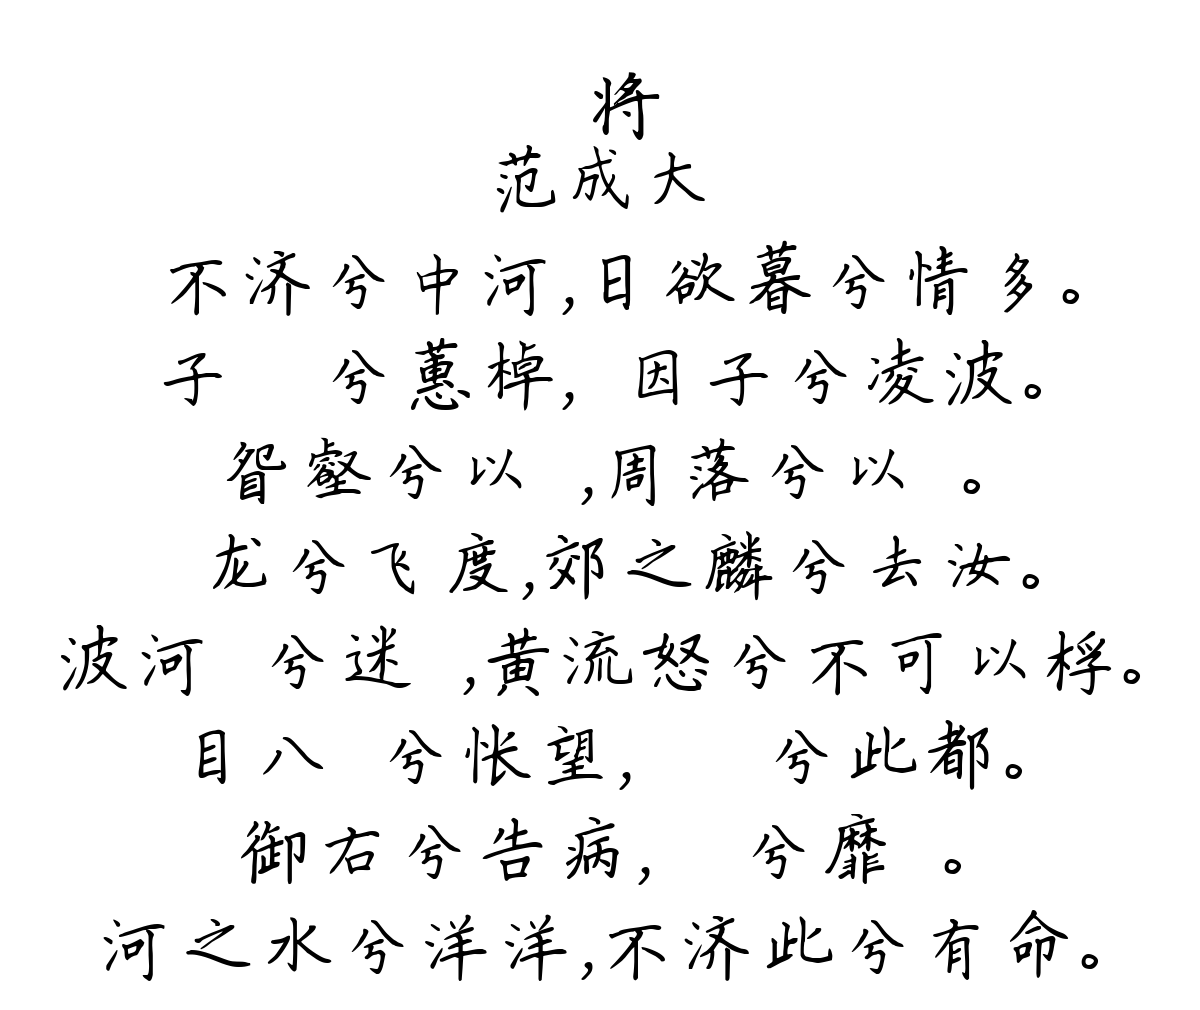 将
范成大
不济兮中河,日欲暮兮情多。
子 兮蕙棹, 因子兮凌波。
眢壑兮以 ,周落兮以 。
龙兮飞度,郊之麟兮去汝。
波河 兮迷 ,黄流怒兮不可以桴。
目八 兮怅望, 兮此都。
御右兮告病, 兮靡 。
河之水兮洋洋,不济此兮有命。